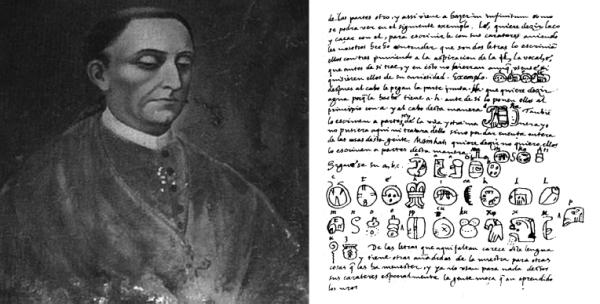 de las partes otro, y assi viene a hazer in infinitum como
se podra ver en el siguiente exemplo. Lé, quiere dezir laço
y caçar con el, para escrivirle con sus carateres aviendo
les nosotros hecho entender que son dos letras lo escrivian
ellos con tres puniendo a la aspiracion de la l, la vocal e,
que antes de si trae, y en esto no hierran aunq
quisieren ellos de su curiosidad. Exemplo.
despues al cabo le pegan la parte junta. Ha. que quiere dezir
agua porq la hache tiene a. h. ante de si lo ponen ellos al
principio con a. y al cabo desta manera Tambie
lo escriven a partes de la una y otra manera yo
no pusiera aqui ni tratara dello sino por dar cuenta entera
de las cosas desta gente. Mainkati quiere dezir no quiero ellos
lo escriven a partes desta manera
Siguese su a.b.c.
De las letras que aqui faltan carece esta lengua
y tiene otras añadidas de la nuestra para otras
cosas q las ha menester, y ya no usan para nada destos
sus carateres especialmente la gente moça q an aprendido
los nros